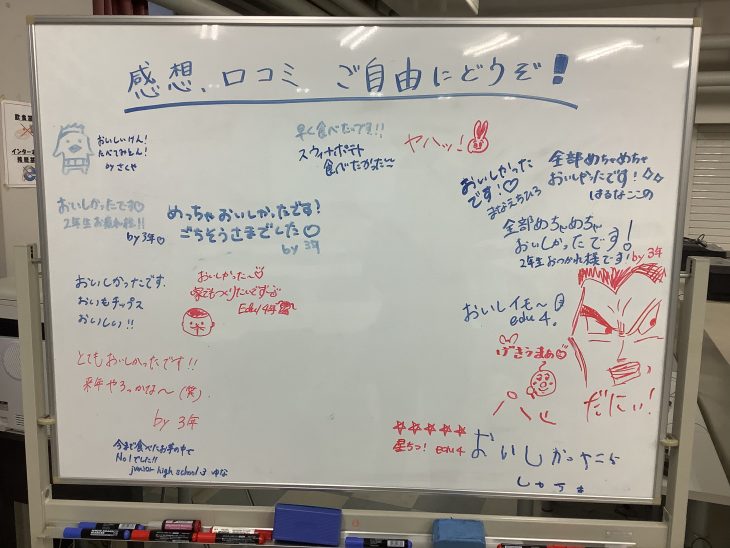 感想、口コミ ご自由にどうぞ!
おいしいけん!
たべてみとん!
by さくや
早く食べたいです!!
スウィートポテト
食べたかった〜
ヤハッ!
おいしかった
です!♡
まなえちひろ
全部めちゃめちゃ
おいしかったです!
はるなここの
おいしかったです♡
2年生お疲れ様!!
by 3年
めっちゃおいしかったです!
ごちそうさまでした♡
by 3年
全部めちゃめちゃ
おいしかったです!
2年生おつかれ様です! by 3年
おいしかったです。
おいもチップス
おいしい!!
おいしかった〜♡
家でもつくりたいです
Edu 4年
おいしイモ〜
edu 4.
げきうまぁ♡
だにぃ!
とてもおいしかったです!!
来年やろっかな〜(笑)
by 3年
今まで食べたお芋の中で
No1でした!!
junior high school 3 ゆな
☆☆☆☆☆
星5つ! edu 4
おいしかったよ